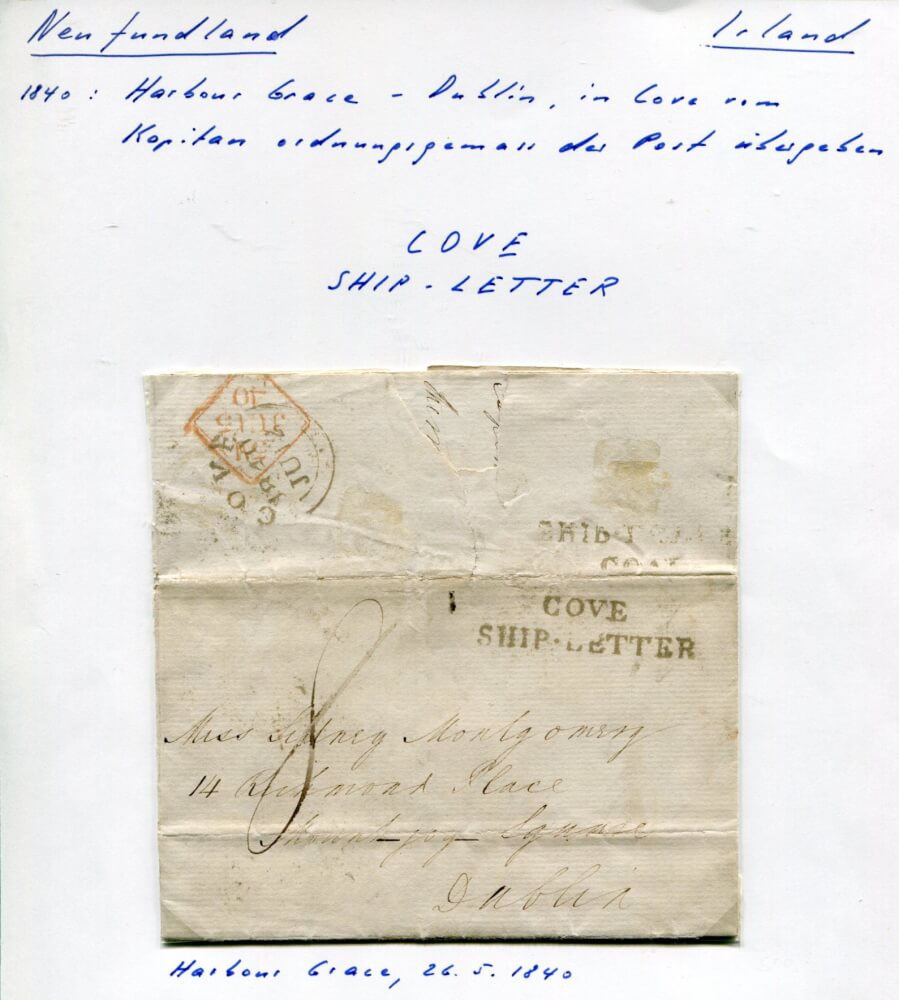 Neufundland Irland
1840 : Harbour Grace - Dublin, in Cove vom
Kapitän ordnungsgemäss der Post übergeben
COVE
SHIP-LETTER
COVE
1840
JU
JU 15
40
COVE
SHIP-LETTER
8
Miss Sidney Montgomery
14 Richmond Place
Mountjoy Square
Dublin
Harbour Grace, 26.5.1840